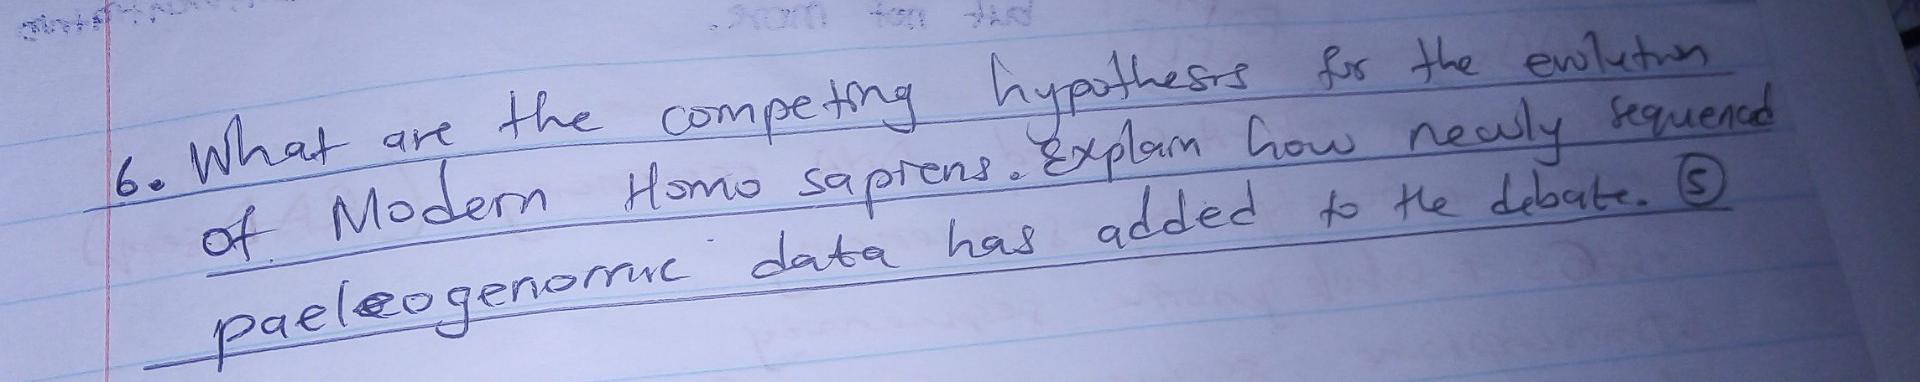 but not more.
6. What are the competing hypothesis for the evolution
of Modern Homo sapiens. Explain how newly sequenced
paeleogenomic data has added to the debate. 5